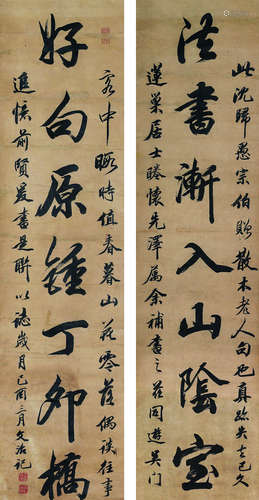 此沈歸愚宗伯贈散木老人句也真跡失去已久
法書漸入山陰室
蓮巢居士勝懷先澤屬余補書之茲同遊吳門
客中暇時值春暮山花零落偶談往事
好句原鍾丁卯橋
追憶前賢爰書是聯以誌歲月己酉三月文治記